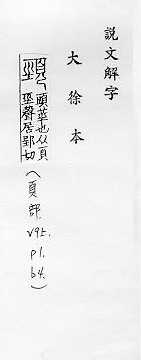 説文解字
大徐本
頸 頭莖也从頁
巠聲居郢切
(頁部. v95. p1. b4.)